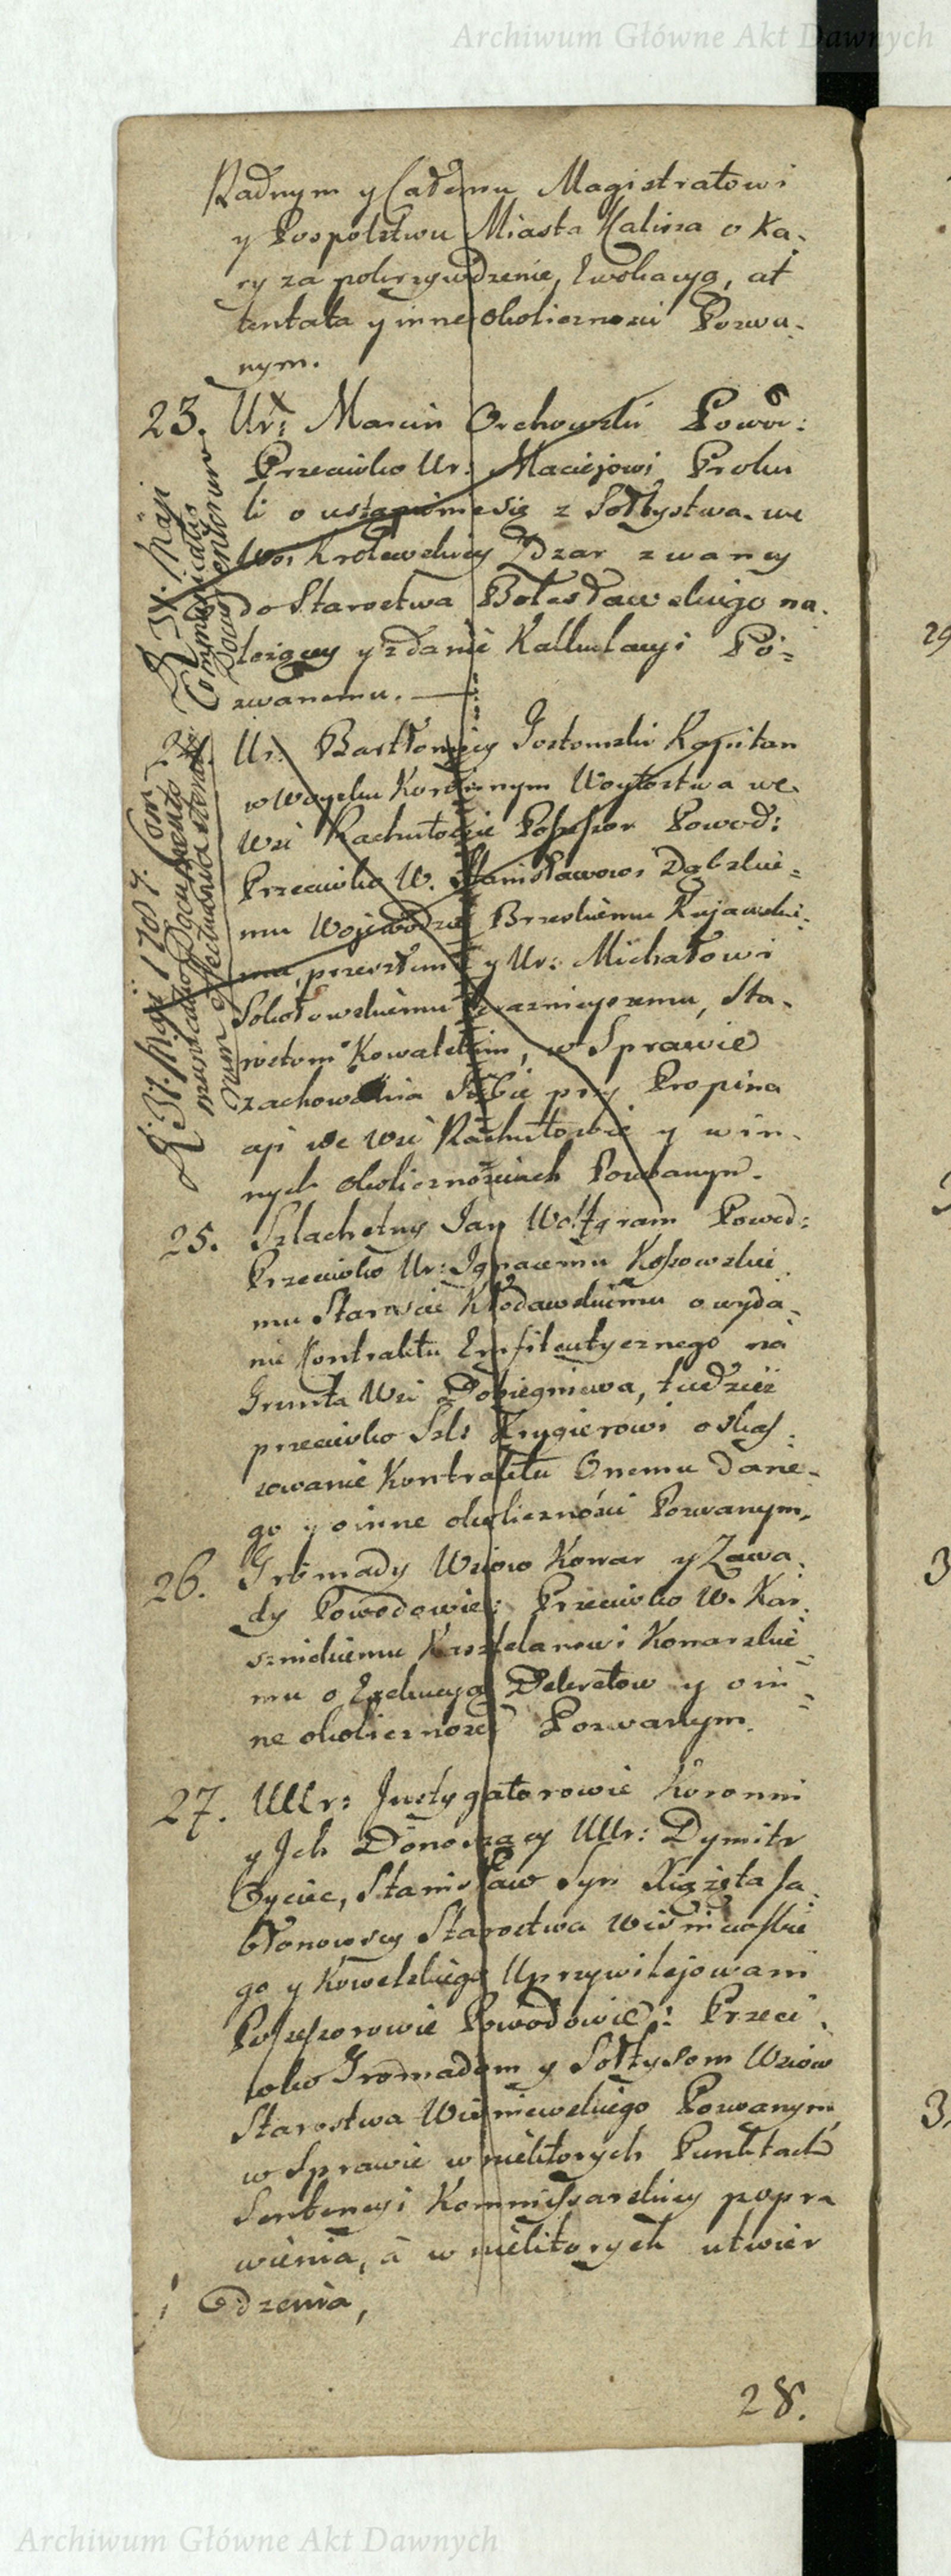 Archiwum Główne Akt Dawnych
Radnym y Całemu Magistratowi
y Pospolstwu Miasta Kalisza o Ka-
ry za pokrzywdzenie, Ewokacyą, at
tentata y inne okoliczności Pozwa-
nym.
23. Ur: Marcin Orchowski Powod:
Przeciwko Ur: Maciejowi Proku
li o ustąpienie się z Sołtystwa we
Wsi Krolewskiey Dzar zwaney
do Starostwa Bolesławskiego na-
leżącey y zdanie Kalkulacyi Po-
zwanemu.
24. Ur: Bartłomiey Jostomski Kapitan
w Woysku Koronnym Woytostwa we
Wsi Rachutowie Possessor Powod:
Przeciwko W. Stanisławowi Dąbskie-
mu Wojewodzie Brzeskiemu Kujawskie-
mu, przeszłemu y Ur: Michałowi
Sokołowskiemu teraznieyszemu, Sta-
rostom Kowalskim, w Sprawie
zachowania Siebie przy Propina
cyi we Wsi Rachutowie y w in-
nych okolicznościach Pozwanym.
25. Szlachetny Jan Wolfgram Powod:
Przeciwko Ur: Ignacemu Kossowskie
mu Staroście Kłodawskiemu o wyda-
nie Kontraktu Emfiteutycznego na
Grunta Wsi Dobiegniewa, tudzież
przeciwko Szl: Krygierowi o skas-
sowanie Kontraktu Onemu dane-
go y o inne okoliczności Pozwanym.
26. Gromady Wsiow Konar y Zawa-
dy Powodowie: Przeciwko W. Kar-
snickiemu Kasztelanowi Konarskie
mu o Exekucyą Dekretow y o in-
ne okoliczności Pozwanym.
27. UUr: Instygatorowie Koronni
y Ich Donoszący UUr: Dymitr
Oyciec, Stanisław Syn Xiążęta Ja-
błonowscy Starostwa Wiśniewskie
go y Kowelskiego Uprzywilejowani
Possessorowie Powodowie: Przeci-
wko Gromadom y Sołtysom Wsiow
Starostwa Wiśniewskiego Pozwanym
w Sprawie w niektorych Punktach
Sentencyi Kommissarskiey popra
wienia, a w niektorych utwier
dzenia,
28.
R. 31. Maji
Communicatio
Documentorum
R. 31. Maji 1787. Com
municatio Documentorum
Archiwum Główne Akt Dawnych